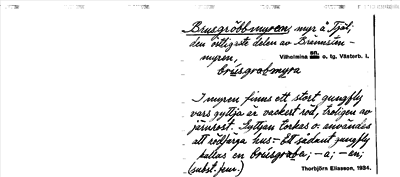 Brusgröbbmyren, myr å Tjäl;
den östligaste delen av Brännsten-
myren,
Vilhelmina sn. o. tg. Västerb. l.
brúsgrobmyra
I myren finns ett stort gungfly
vars gyttja är vackert röd, troligen av
järnrost. Gyttjan torkas o. användes
att rödfärga hus – Ett sådant gungfly
kallas en brúsgroba; -a; -en;
(subst. fem.)
Thorbjörn Eliasson, 1934.